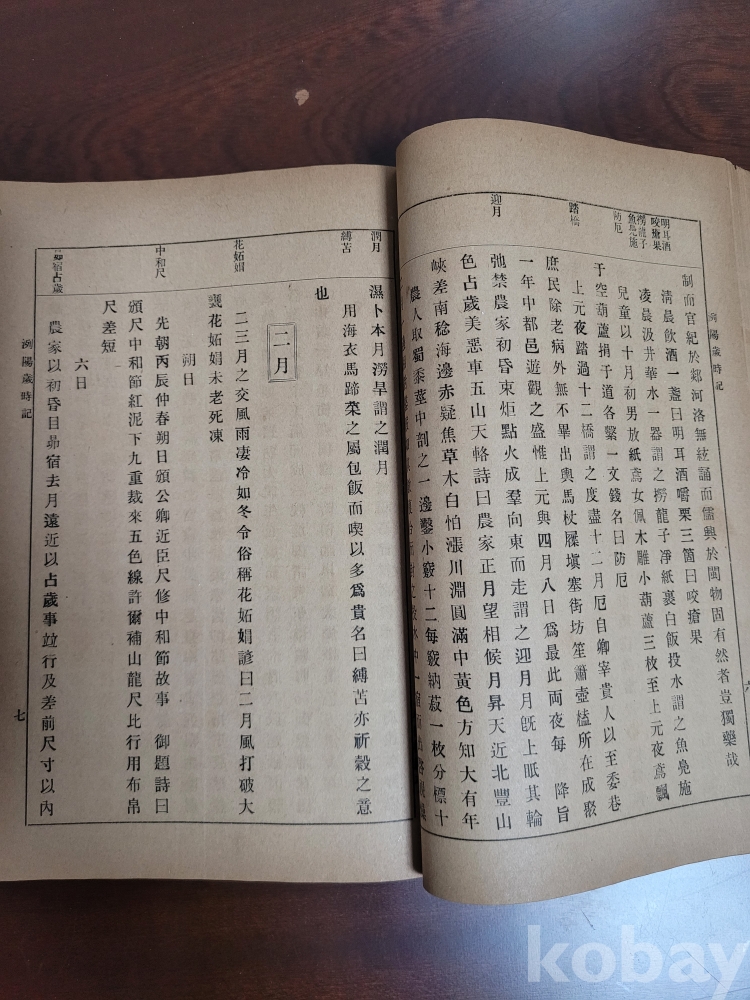 洌陽歲時記
明耳酒
咬瘡果
撈龍子
魚鳧施
防厄
踏橋
迎月
制而官紀於郯河洛無絃誦而儒興於閩物固有然者豈獨藥哉
淸晨飮酒一盞曰明耳酒嚼栗三箇曰咬瘡果
凌晨汲井華水一器謂之撈龍子淨紙裹白飯投水謂之魚鳧施
兒童以十月初男放紙鳶女佩木雕小葫蘆三枚至上元夜鳶飄
于空葫蘆捐于道各繫一文錢名曰防厄
上元夜踏過十二橋謂之度盡十二月厄自卿宰貴人以至委巷
庶民除老病外無不畢出輿馬杖屨塡塞街坊笙簫壺榼所在成聚
一年中都邑遊觀之盛惟上元與四月八日爲最此兩夜每 降旨
弛禁農家初昏束炬點火成羣向東而走謂之迎月月旣上眂其輪
色占歲美惡車五山天輅詩曰農家正月望相候月昇天近北豐山
峽差南稔海邊赤疑焦草木白怕漲川淵圓滿中黃色方知大有年
農人取蜀黍莖中剖之一邊鑿小竅十二每竅納菽一枚分標十
六
潤月
縛苫
花妬娟
中和尺
昴宿占歲
濕卜本月澇旱謂之潤月
用海衣馬蹄菜之屬包飯而喫以多爲貴名曰縛苫亦祈穀之意
也
二月
二三月之交風雨凄冷如冬令俗稱花妬娟諺曰二月風打破大
甕花妬娟未老死凍
朔日
先朝丙辰仲春朔日頒公卿近臣尺修中和節故事 御題詩曰
頒尺中和節紅泥下九重裁來五色線許爾補山龍尺比行用布帛
尺差短
六日
農家以初昏目昴宿去月遠近以占歲事竝行及差前尺寸以內
洌陽歲時記
七
kobay